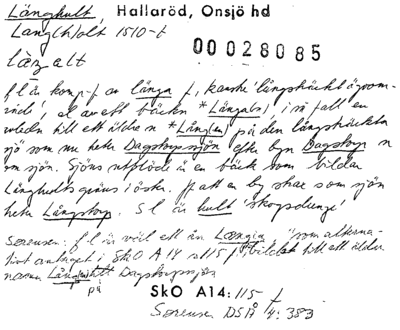 Långhult, Hallaröd, Onsjö hd
Lang(h)olt 1510-t
00028085
f l är komp-f av långa f, kanske 'långsträckt ägoom-
råde', el av ett bäckn *Lång, i så fall en
till ett äldre n *Lång på den långsträckta
sjö som nu heter Dagstorpsjön efter byn Dagstorp n
om sjön. Sjöns utflöde är en bäck som bildar
Långhults gräns i öster. att en by som sjön
heter Långstorp. S l är hult 'skogsdunge'
Sørensen: f l är väl ett ån Længia som alterna-
tivt antaget i SkO A 14 s 115 f, bildat till ett äldre
namn Lång på Dagstorpssjön
SkO A14:115 f
Sørensen DSÅ 4:383